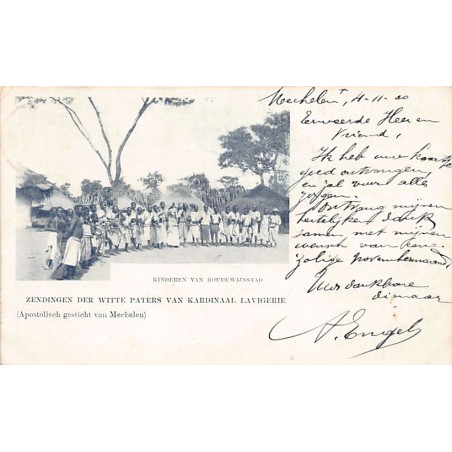 Mechelen, 4-11-00
Eerweerde Heer en
Vriend,
Ik heb uwe kaartje
goed ontvangen,
en zal voor alles
zorgen.
Ontvang mijnen
hartelijken dank
samen met mijnen
wensch van eene
zalige novembermaand,
Uwe dankbare
dienaar
A. Engels
KINDEREN VAN BOUDEWIJNSTAD
ZENDINGEN DER WITTE PATERS VAN KARDINAAL LAVIGERIE
(Apostolisch gesticht van Mechelen)